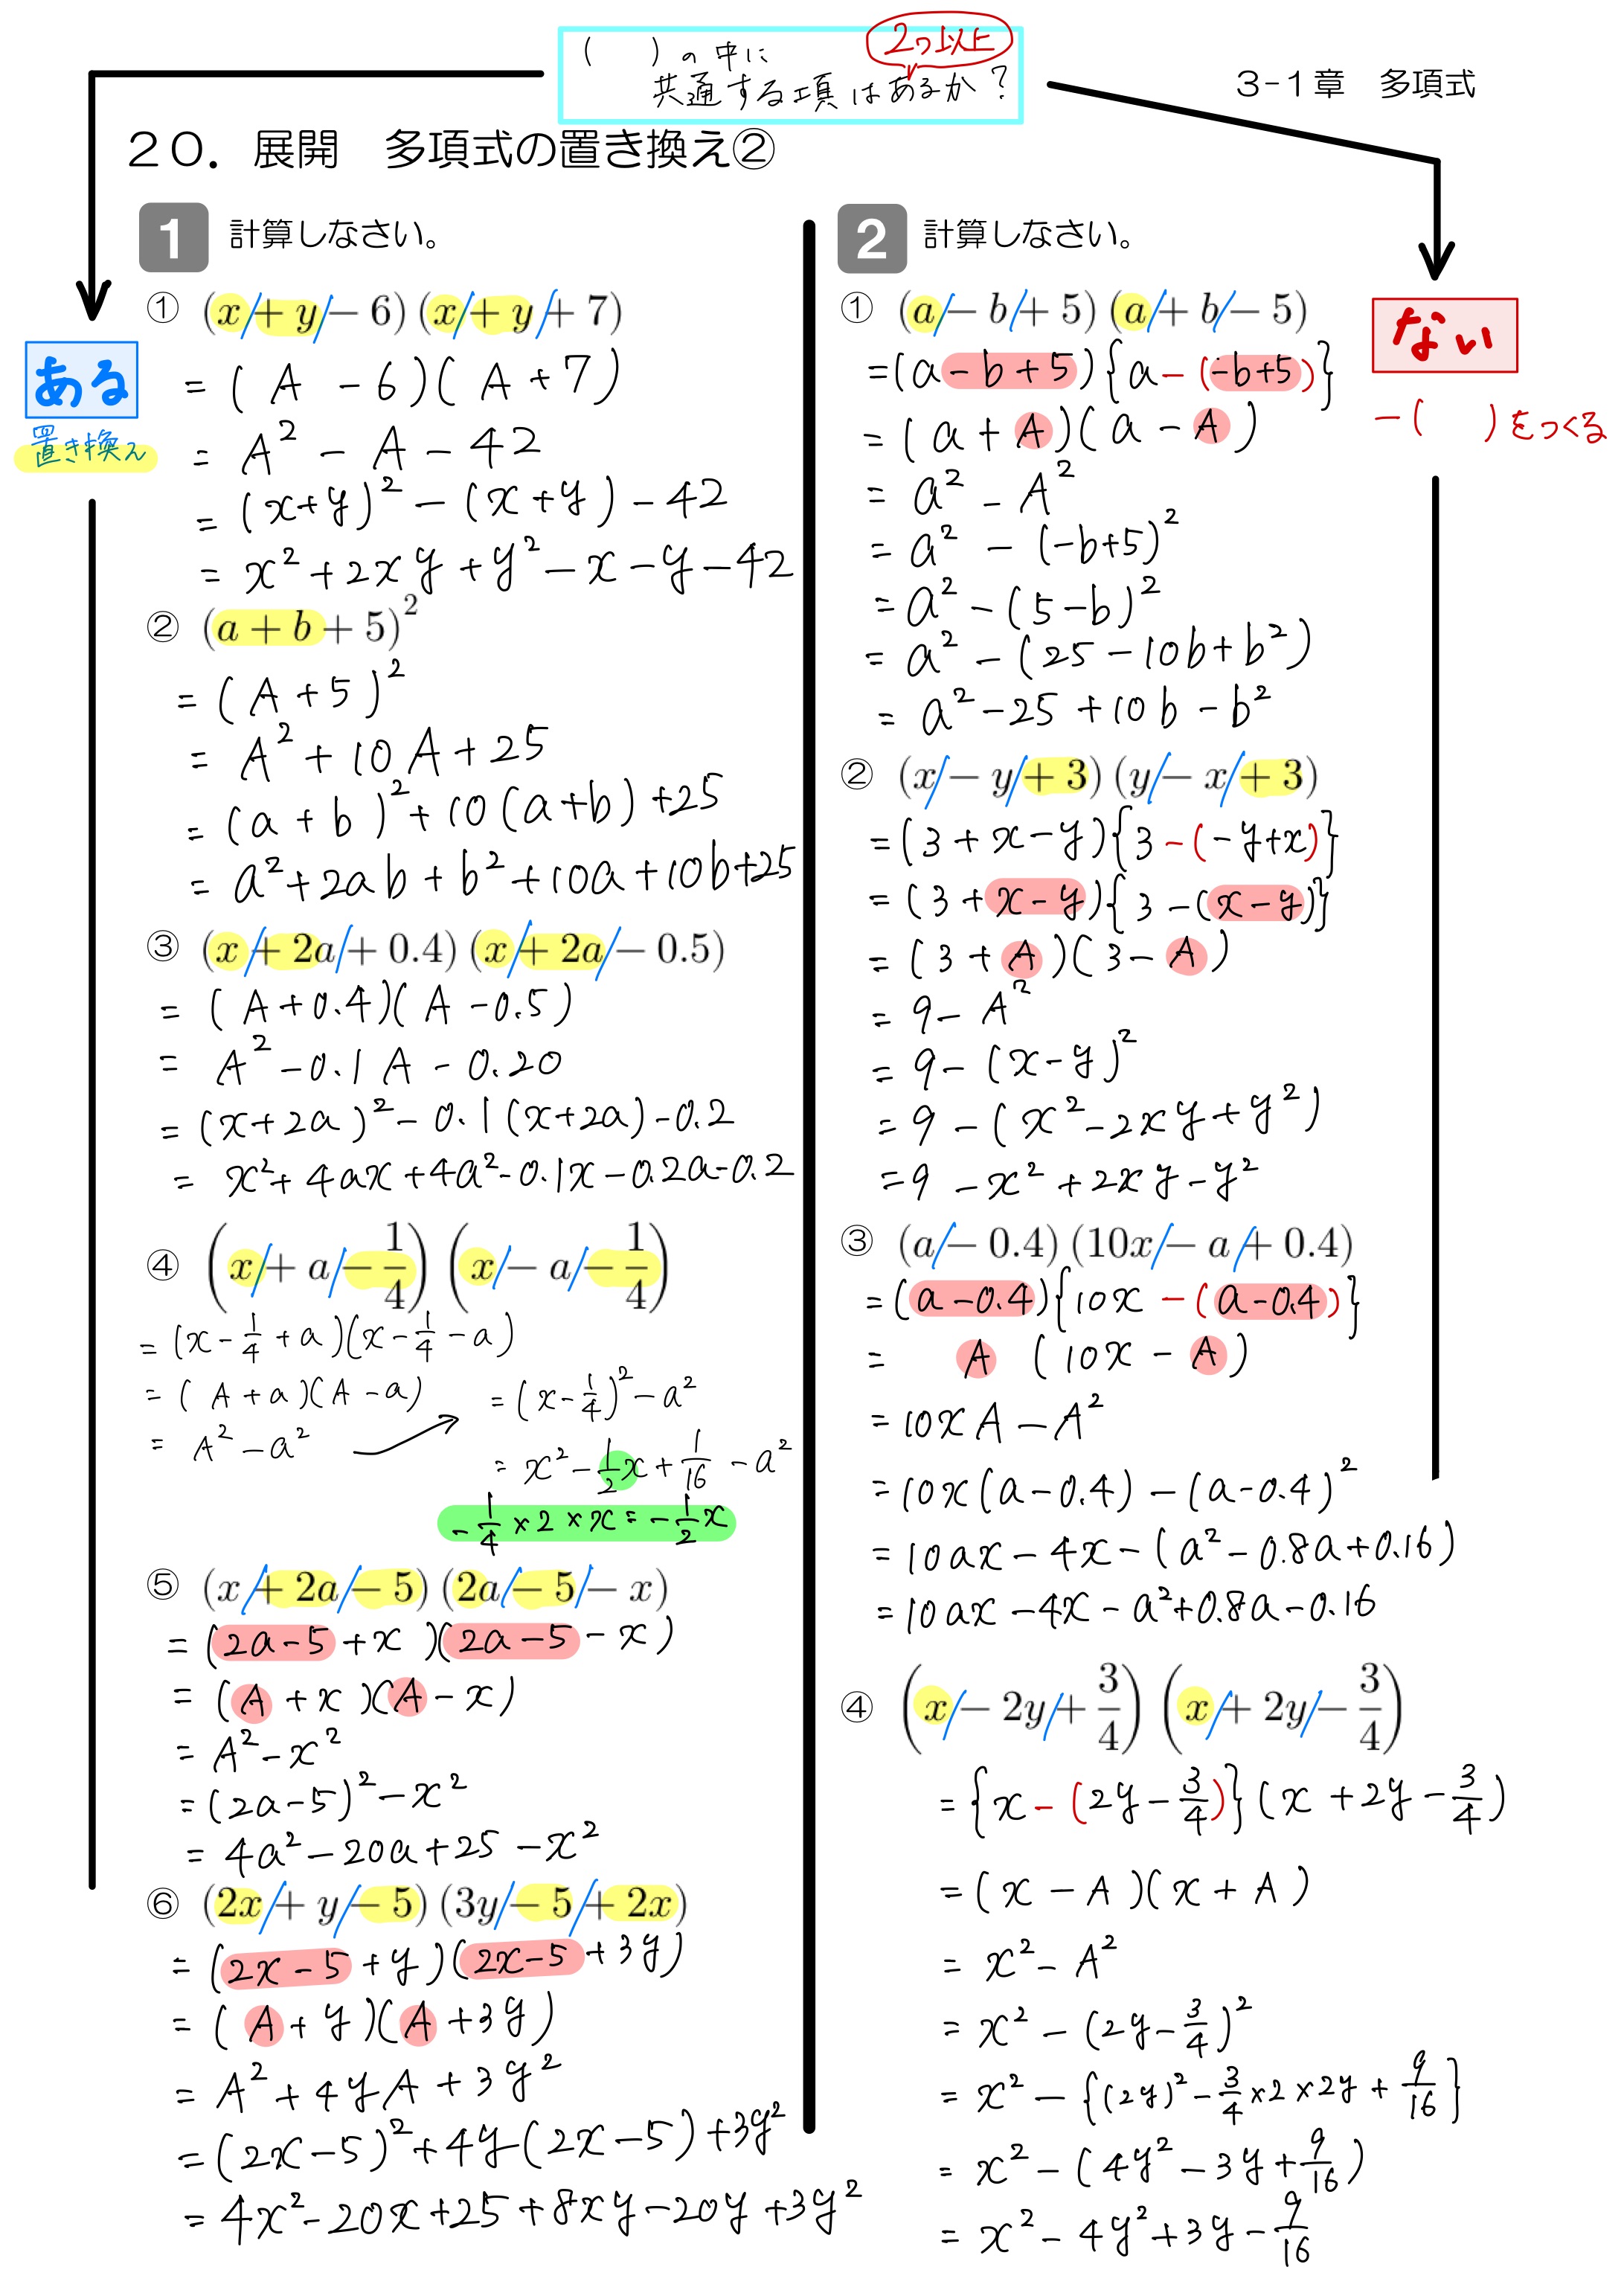 ( )の中に 2つ以上
共通する項はあるか?
3-1章 多項式
20. 展開 多項式の置き換え②
1 計算しなさい。
ある
置き換え
① (x + y − 6) (x + y + 7)
= (A − 6)(A + 7)
= A² − A − 42
= (x+y)² − (x+y) − 42
= x² + 2xy + y² − x − y − 42
② (a + b + 5)²
= (A + 5)²
= A² + 10A + 25
= (a + b)² + 10(a+b) + 25
= a² + 2ab + b² + 10a + 10b + 25
③ (x + 2a + 0.4) (x + 2a − 0.5)
= (A + 0.4)(A − 0.5)
= A² − 0.1A − 0.20
= (x+2a)² − 0.1(x+2a) − 0.2
= x² + 4ax + 4a² − 0.1x − 0.2a − 0.2
④ (x + a − 1/4) (x − a − 1/4)
= (x − 1/4 + a)(x − 1/4 − a)
= (A + a)(A − a)
= A² − a²
= (x − 1/4)² − a²
= x² − 1/2x + 1/16 − a²
− 1/4 × 2 × x = − 1/2x
⑤ (x + 2a − 5) (2a − 5 − x)
= (2a − 5 + x)(2a − 5 − x)
= (A + x)(A − x)
= A² − x²
= (2a − 5)² − x²
= 4a² − 20a + 25 − x²
⑥ (2x + y − 5) (3y − 5 + 2x)
= (2x − 5 + y)(2x − 5 + 3y)
= (A + y)(A + 3y)
= A² + 4yA + 3y²
= (2x − 5)² + 4y(2x − 5) + 3y²
= 4x² − 20x + 25 + 8xy − 20y + 3y²
2 計算しなさい。
ない
−( )をつくる
① (a − b + 5) (a + b − 5)
= (a − b + 5){a − (−b+5)}
= (a + A)(a − A)
= a² − A²
= a² − (−b+5)²
= a² − (5−b)²
= a² − (25 − 10b + b²)
= a² − 25 + 10b − b²
② (x − y + 3) (y − x + 3)
= (3 + x − y){3 − (−y+x)}
= (3 + x − y){3 − (x − y)}
= (3 + A)(3 − A)
= 9 − A²
= 9 − (x − y)²
= 9 − (x² − 2xy + y²)
= 9 − x² + 2xy − y²
③ (a − 0.4) (10x − a + 0.4)
= (a − 0.4){10x − (a − 0.4)}
= A (10x − A)
= 10xA − A²
= 10x(a − 0.4) − (a − 0.4)²
= 10ax − 4x − (a² − 0.8a + 0.16)
= 10ax − 4x − a² + 0.8a − 0.16
④ (x − 2y + 3/4) (x + 2y − 3/4)
= {x − (2y − 3/4)}(x + 2y − 3/4)
= (x − A)(x + A)
= x² − A²
= x² − (2y − 3/4)²
= x² − {(2y)² − 3/4 × 2 × 2y + 9/16}
= x² − (4y² − 3y + 9/16)
= x² − 4y² + 3y − 9/16